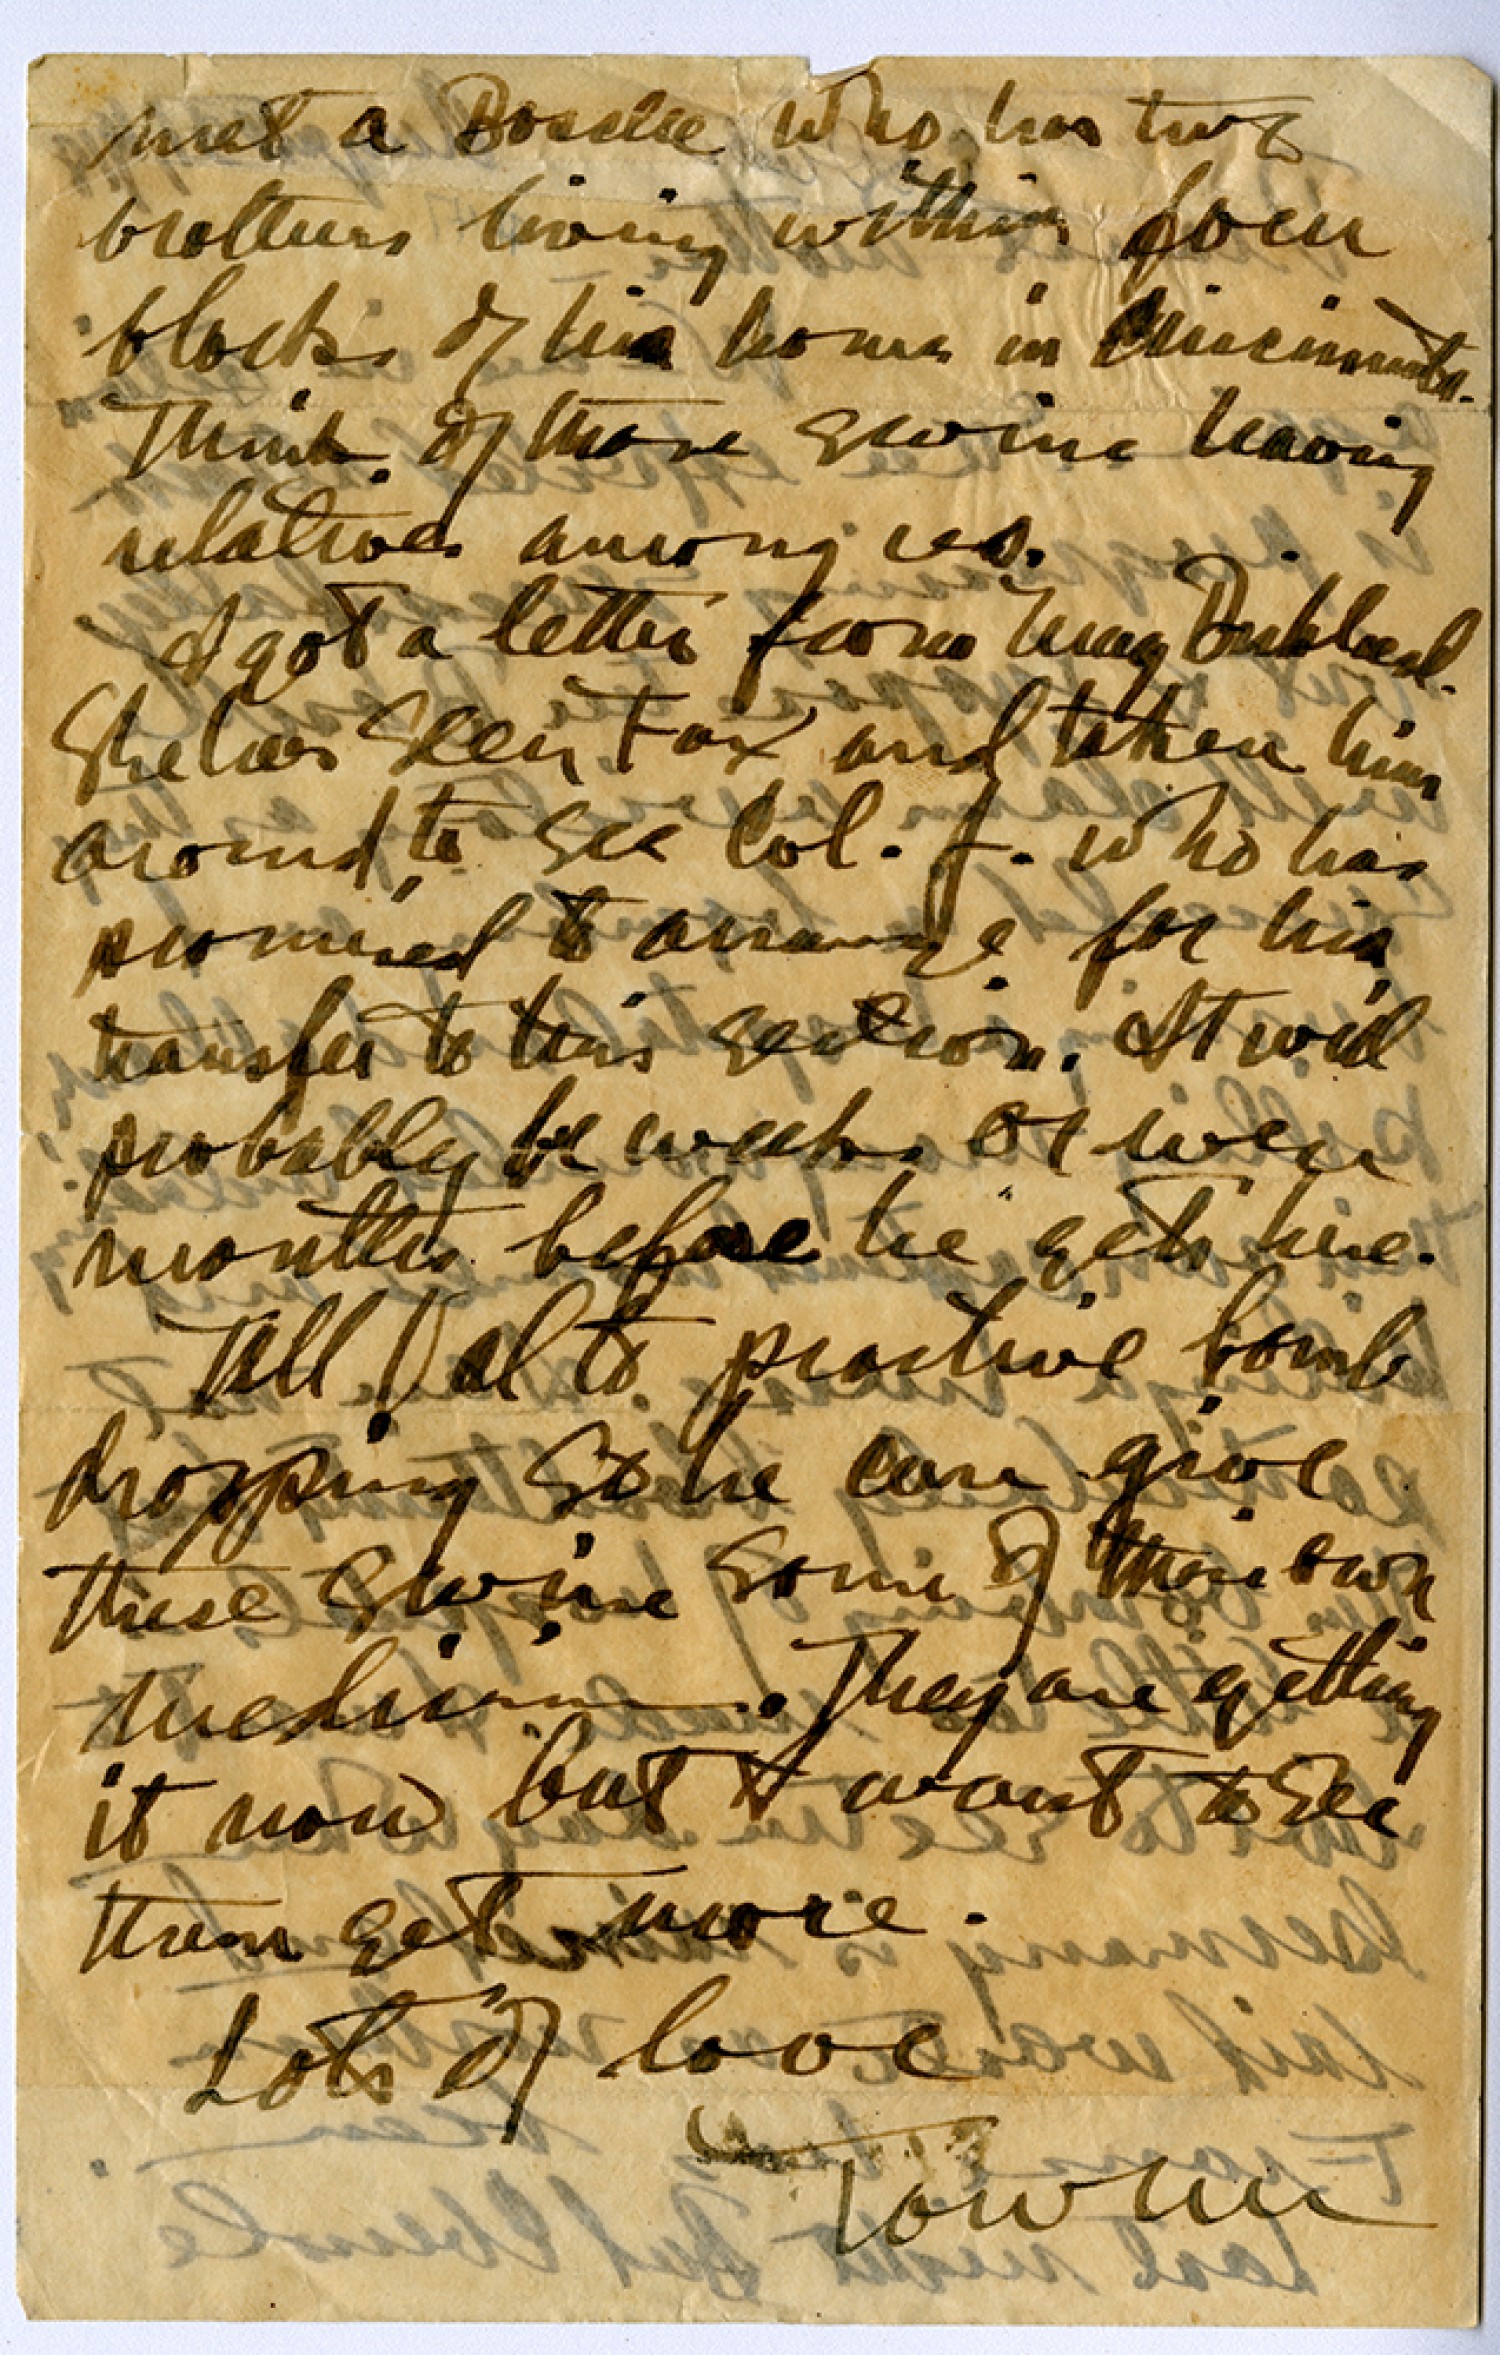 met a Bosche who has two
brothers living within four
blocks of his home in Cincinnati.
Think of those swine having
relatives among us.
I got a letter from May
She has seen Fox and taken him
around to see Col. J. who has
promised to arrange for his
transfer to this section. It will
probably be weeks or even
months before he gets here.
Tell Val to practice bomb
dropping so he can give
these swine some of their own
medicine. They are getting
it now but I want to see
them get more.
Lots of love